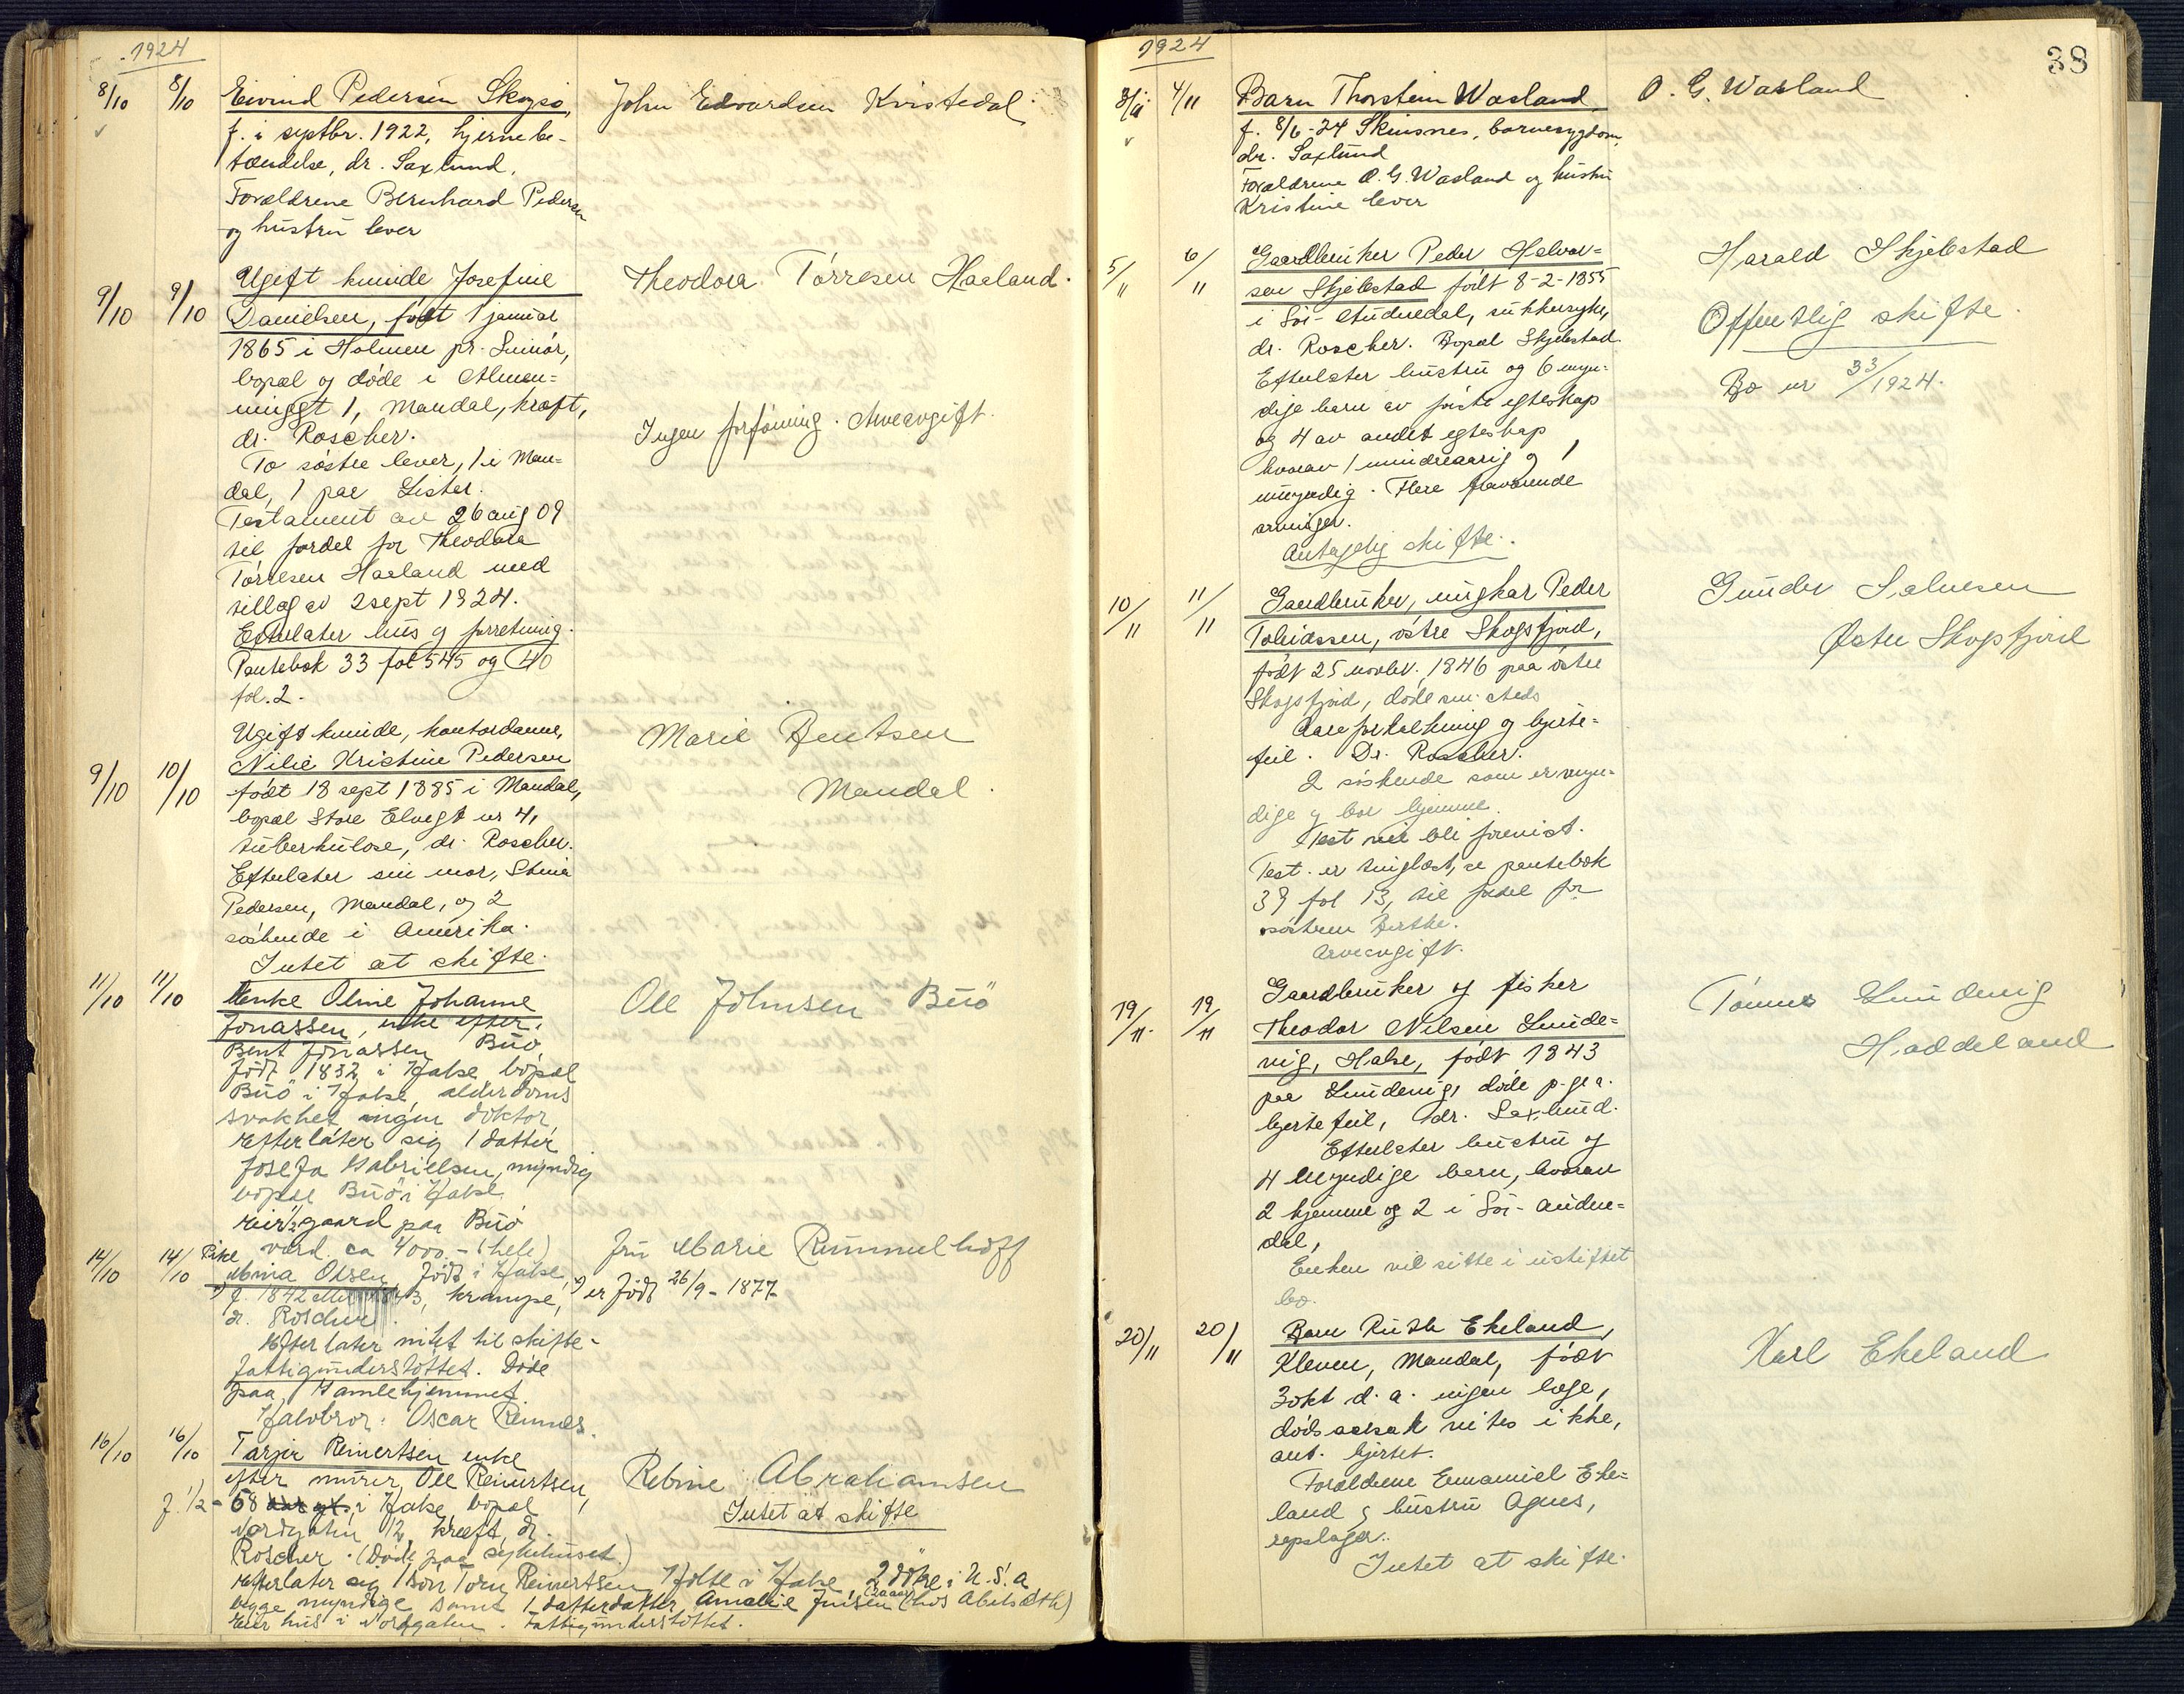 1924
8/10 8/10 Eivind Pedersen Skogsø, John Edvardsen Kvistedal
f. i septbr. 1922, hjernebe-
tændelse, dr. Saxlund.
Forældrene Bernhard Pedersen
og hustru lever
9/10 9/10 Ugift kvinde Josefine Theodora Tørresen Haaland.
Danielsen, født 1 januar
1865 i Holmen pr. Sunør,
bopæl og døde i Almen-
ninggt 1, Mandal, kræft,
dr. Roscher. Ingen forføining. Arveavgift.
To søstre lever, 1 i Man-
dal, 1 paa Lister.
Testament av 26 aug 09
til fordel for Theodora
Tørresen Haaland med
tillæg av 2 sept 1924.
Efterlater hus og forretning.
Pantebok 33 fol 545 og 40
fol. 2.
9/10 10/10 Ugift kvinde, kontordame, Marie Bentsen
Nilie Kristine Pedersen Mandal.
født 18 sept 1885 i Mandal,
bopæl Store Elvegt nr 4,
tuberkulose, dr. Roscher.
Efterlater sin mor, Stina
Pedersen, Mandal, og 2
søskende i Amerika.
Intet at skifte.
11/10 11/10 Enke Oline Johanne Ole Johnsen Buø
Jonassen, enke efter
Bent Jonassen Buø
født 1832 i Halse bopæl
Buø i Halse, alderdoms
svakhet ingen doktor,
efterlater sig 1 datter
Josefa Gabrielsen, myndig
bopæl Buø i Halse
eier 1/2 gaard paa Buø
værd. ca 4000.- (hele)
14/10 14/10 Pike Mina Olsen, født i Halse, Fru Marie Rummelhoff
f. 1842 eller 1843, krampe, er født 26/9-1877
dr. Roscher.
Efterlater intet til skifte-
fattigunderstøttet. Døde
paa Gamlehjemmet
Halvbror: Oscar Reimes.
16/10 16/10 Tarjer Reinertsen enke Rebine Abrahamsen
efter murer Ole Reinertsen, Intet at skifte
f. 1/2-58 i Halse, bopæl
Nordgaten 12, kræft, dr.
Roscher. (Døde paa sykehuset.)
efterlater sig 1 søn Tom Reinertsen, Holte i Halse, 2 døtre i U.S.A
begge myndige samt 1 datterdatter Amalie Jensen (hos Abels Ath)
Eier hus i Nordgaten. Fattigunderstøttet.
38
1924
3/11 4/11 Barn Thorstein Wasland, O. G. Wasland
f. 8/6-24 Skinsnes, barnesygdom,
dr. Saxlund
Forældrene O. G. Wasland og hustru
Kristine lever
5/11 6/11 Gaardbruker Peder Halvor- Harald Skjebstad
sen Skjebstad født 8-2-1855 Offentlig skifte.
i Sør-Audnedal, sukkersyke,
dr. Roscher. Bopæl Skjebstad. Bo nr 33/1924.
Efterlater hustru og 6 myn-
dige barn av første egteskap
og 4 av andet egteskap
hvorav 1 mindreaarig og 1
umyndig. Flere fraværende
arvinger.
Antagelig skifte.
10/11 11/11 Gaardbruker, ungkar Peder Gunder Salvesen
Tobiassen, østre Skogsfjord, Østre Skogsfjord
født 25 novbr. 1846 paa østre
Skogsfjord, døde sm. steds
Aareforkalkning og hjerte-
feil. Dr. Roscher.
2 søskende som er myn-
dige og bor hjemme.
Test vil bli forevist.
Test. er tinglæst, se pantebok
39 fol 13, til fordel for
søstrene Berthe.
Arveavgift.
19/11 19/11 Gaardbruker og fisker Tønnes Lundevig
Theodor Nilsen Lunde- Haddeland
vig, Halse, født 1843
paa Lundevig, døde p. gr. a.
hjertefeil, dr. Saxlund.
Efterlater hustru og
4 myndige barn, hvorav
2 hjemme og 2 i Sør-Audne-
dal,
Enken vil sitte i uskiftet
bo.
20/11 20/11 Barn Ruth Ekeland, Karl Ekeland
Kleven, Mandal, født
3 okt d. a. ingen læge,
dødsaarsak vites ikke,
ant. hjertet.
Forældrene Emanuel Eke-
land og hustru Agnes,
repslager.
Intet at skifte.